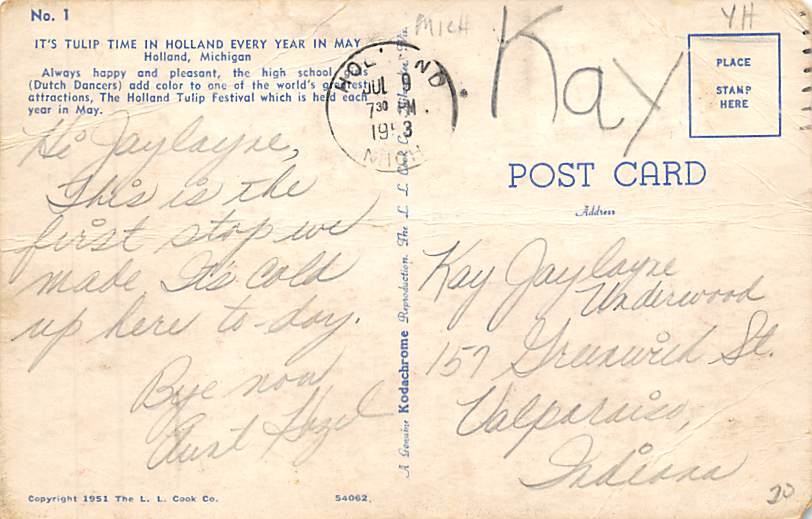 No. 1
IT'S TULIP TIME IN HOLLAND EVERY YEAR IN MAY
Holland, Michigan
Always happy and pleasant, the high school
(Dutch Dancers) add color to one of the world's greatest
attractions, The Holland Tulip Festival which is held each
year in May.
Hi Jaylayne,
This is the
first stop we
made. Its cold
up here to-day.
Bye now
Aunt Hazel
Copyright 1951 The L. L. Cook Co.
54062
A Genuine Kodachrome Reproduction, The L. L. Cook Co.
MICH
HOLLAND
JUL 9
7 30 PM
1953
MICH
Kay
YH
PLACE
STAMP
HERE
POST CARD
Address
Kay Jaylayne
Underwood
157 Greenwich St.
Valparaiso,
Indiana
20